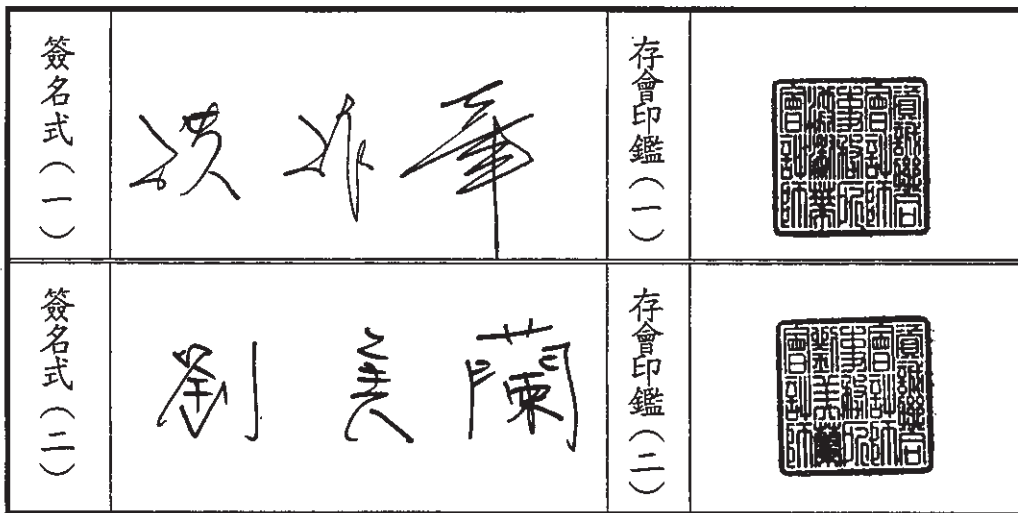 簽名式(一)
洪淑華
存會印鑑(一)
資誠聯合會計師事務所洪淑華會計師
簽名式(二)
劉美蘭
存會印鑑(二)
資誠聯合會計師事務所劉美蘭會計師